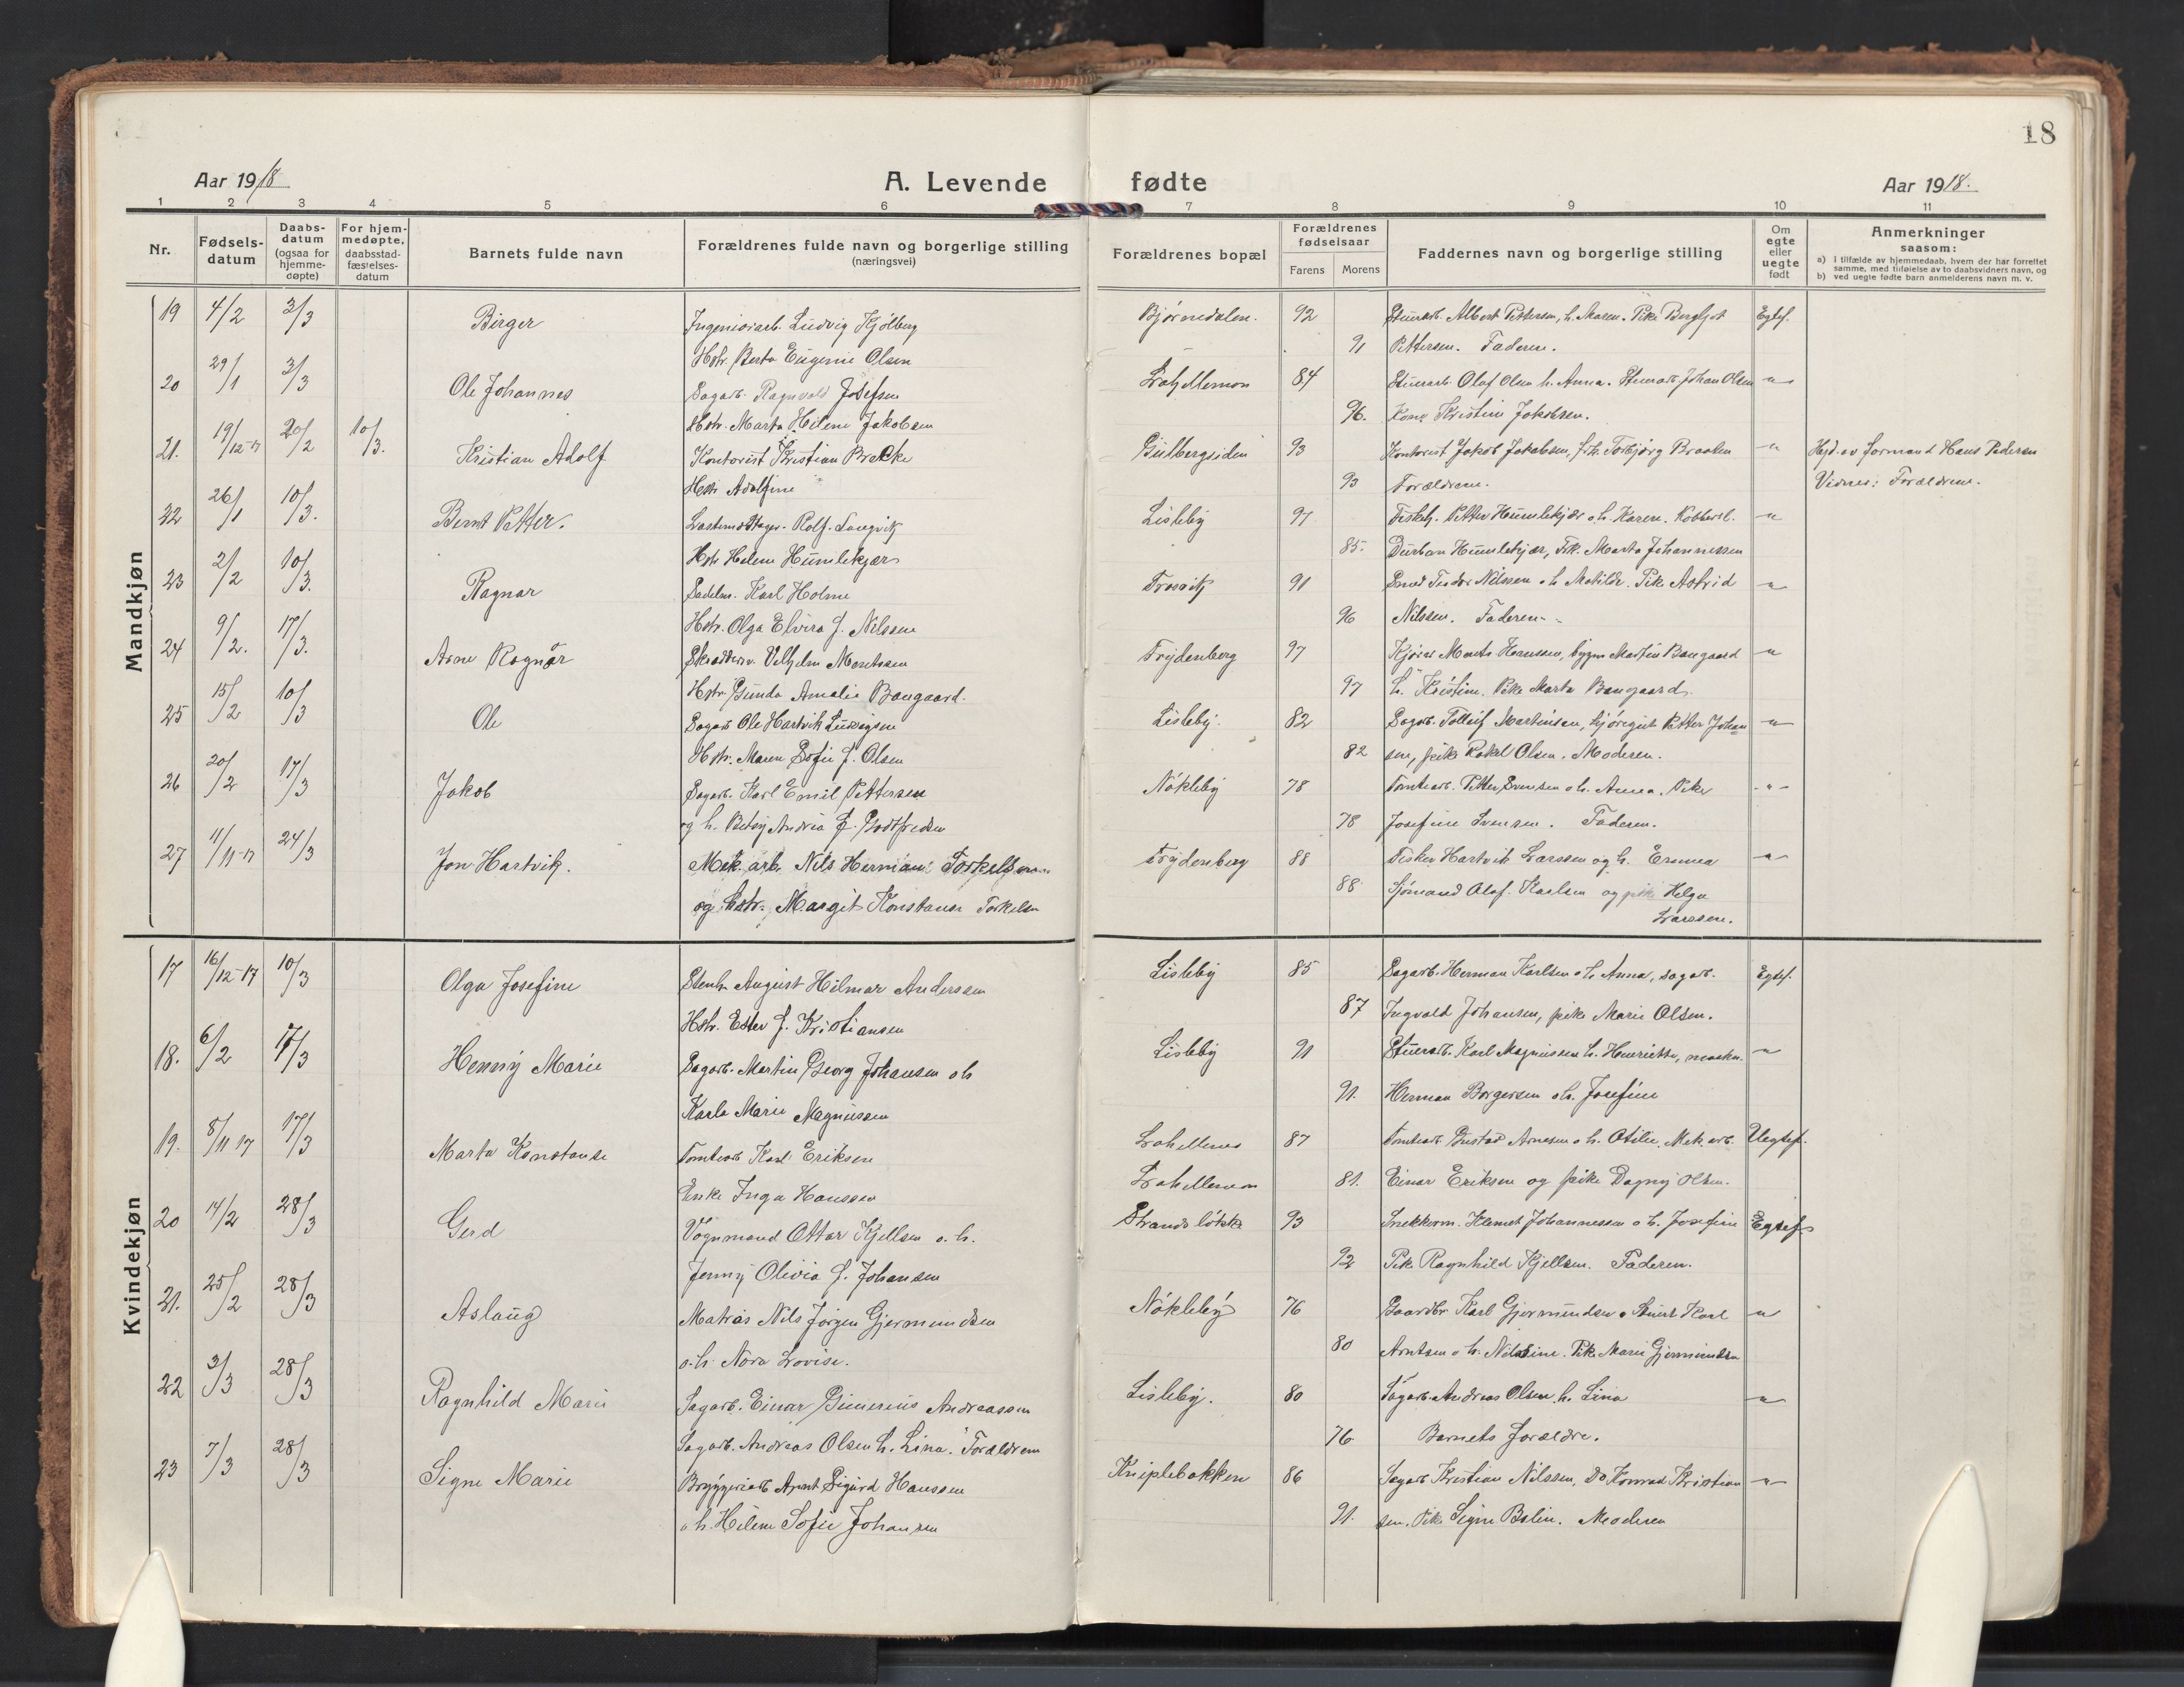 18
Aar 1918
A. Levende fødte
Aar 1918.
1 2 3 4 5 6 7 8 9 10 11
Nr.
Fødsels-datum
Daabs-datum (ogsaa for hjemme-døpte)
For hjem-medøpte, daabsstad-fæstelses-datum
Barnets fulde navn
Forældrenes fulde navn og borgerlige stilling (næringsvei)
Forældrenes bopæl
Forældrenes fødselsaar
Farens Morens
Faddernes navn og borgerlige stilling
Om egte eller uegte født
Anmerkninger saasom:
a) I tilfælde av hjemmedaab, hvem der har forrettet samme, med tilføielse av to daabsvidners navn, og
b) ved uegte fødte barn anmelderens navn m. v.
Mandkjøn
19 4/2 3/3 Birger Ingeniörarb. Ludvig Kjölberg Bjørnedalen. 92 Stuerarb. Albert Pettersen, h. Maren. Pike Bergljot Egtef.
Hstr. Berta Eugenie Olsen 91 Pettersen. Faderen.
20 29/1 3/3 Ole Johannes Sagarb. Ragnvald Josefsen 84 Stuerarb. Olaf Olsen h. Anna. Stuerarb. Johan Olsen "
Hstr. Marta Helene Jakobsen 96. Kone Kristine Jakobsen.
21. 19/12-17 20/2 10/3. Kristian Adolf Kontorist Kristian Bracke Gulbergsiden 93 Kontorist Jakob Jakobsen, frk. Torbjörg Braaten " Hjd. av formand Hans Pedersen
Hstr Adolfine 93 Forældrene. Vidner: Forældrene.
22 26/1 10/3. Bernt Petter. Rolf Langvik Lisleby 91 Petter Humlekjær o h. Karen.
Hstr Helene Humlekjær 85. Humlekjær, Frk. Marta Johannessen
23 2/2 10/3. Ragnar Sadelm. Karl Holme Trosvik 91 Smed Teodor Nilssen o h Matilde. Pike Astrid "
Hstr. Olga Elvira f. Nilssen 96 Nilssen. Faderen.
24 9/2. 17/3. Arne Ragnar Skrædderm. Vilhelm Moritssen Frydenberg 97 Martin Baugaard "
Hstr. Gunda Amalie Baugaard. 97 h. Kristine. Pike Marta Baugaard.
25 15/2 10/3 Ole Sagarb Ole Hartvik Ludvigsen Lisleby. 82 Sagarb. Tolleif Martinsen, kjøregut Petter Johan "
Hstr. Maren Sofie f. Olsen 82 sen, pike Rakel Olsen. Moderen.
26 20/2 17/3 Jakob Sagarb. Karl Emil Pettersen Nökleby 78 Tomtearb. Petter Svensen o h. Anna. Pike "
og h. Betsy Andrea f. Godtfredsen 78 Josefine Svensen. Faderen.
27 11/11-17 24/3 Jon Hartvik. Mek. arb. Nils Herman Torkelsen Frydenberg 88 Fisker Hartvik Larssen og h. Emma "
og hstr. Margit Konstanse Torkelsen 88. Sjömand Olaf Karlsen og pike Helga
Larssen.
Kvindekjøn
17 16/12-17 10/3 Olga Josefine Stenh. August Hilmar Anderssen Lisleby 85 Sagarb. Herman Karlsen o h. Anna, sagarb. Egtef.
Hstr. Ester f. Kristiansen 87 Ingvald Johansen, pike Marie Olsen.
18. 6/2 17/3 Henny Marie Sagarb. Martin Georg Johansen o h Lisleby 91 Stuerarb. Karl Magnussen h. Henriette, "
Karla Marie Magnussen 91. Herman Borgersen o h. Josefine
19. 8/11 17 17/3 Marta Konstanse Tomtearb Karl Eriksen 87 Tomtearb Gustav Arnesen o h. Otilie. Mek. arb. Uegtef.
Enke Inga Hanssen 81. Einar Eriksen og pike Dagny Olsen.
20 14/2 28/3 Gerd Vognmand Ottar Kjellsen o. h. 93 Snekkerm. Klemet Johannessen o h. Josefine Egtef.
Jenny Olivia f. Johansen 92 Pike Ragnhild Kjellsen. Faderen.
21. 25/2 28/3 Aslaug Matros Nils Jörgen Gjermundsen Nökleby 76 Gaardbr. Karl Gjermundsen o Karl "
o. h. Nora Lovise. 80 Arntsen o h. Nilssine. Pike Marie Gjermundsen
22 3/3 28/3 Ragnhild Marie Sagarb. Einar Gunerius Andreassen Lisleby. 80 Sagarb. Andreas Olsen h. Lina "
Sagarb. Andreas Olsen h. Lina. Forældrene 76 Barnets forældre.
23 7/3 28/3 Signe Marie Bryggeriarb Arnt Sigurd Hanssen Kniplebakken 86 Sagarb Kristian Nilssen, Do Konrad Kristian "
o h. Helene Sofie Johansen 91. sen. Pike Signe Bolin. Moderen